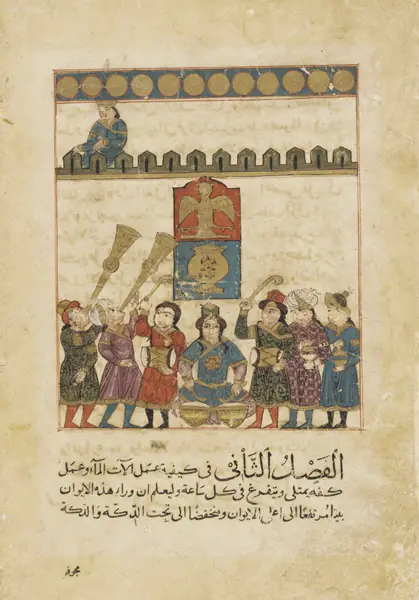 الفصل الثاني في كيفية عمل الات الماء وعمل
كفه يمتلي ويتفرغ في كل ساعة وليعلم ان وراء هذه الايوان
بيتا مرتفعا الى اعلى الايوان ومنخفضا الى تحت الدكة والدكة
مجوفة